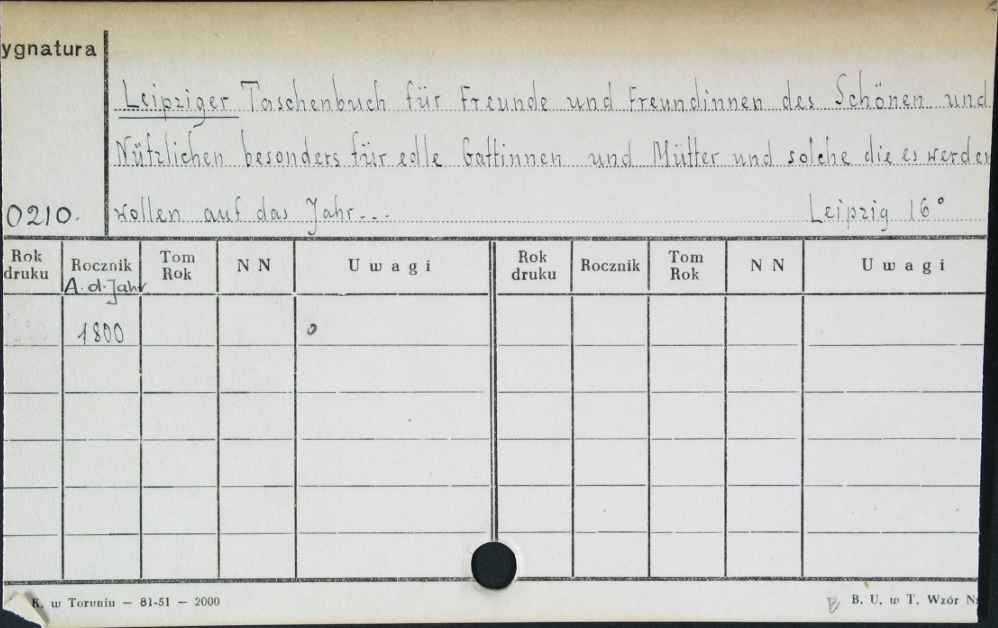 ygnatura
Leipziger Taschenbuch für Freunde und Freundinnen des Schönen und
Nützlichen besonders für edle Gattinnen und Mütter und solche die es werden
0210. wollen auf das Jahr... Leipzig 16°
Rok druku Rocznik Tom Rok N N Uwagi Rok druku Rocznik Tom Rok N N Uwagi
A.d.Jahr
1800 o
K. w Toruniu — 81-51 — 2000
B. U. w T. Wzór N